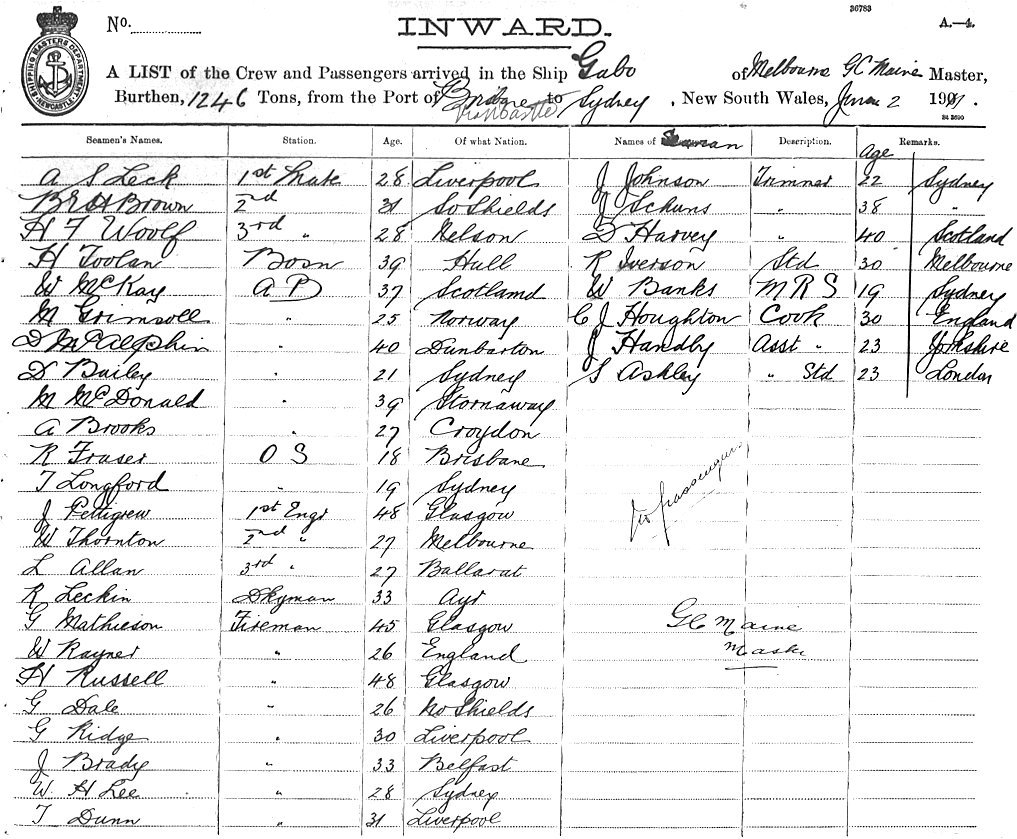 36783
No. INWARD. A.—4.
SHIPPING MASTERS DEPARTMENT NEWCASTLE
A LIST of the Crew and Passengers arrived in the Ship Gabo of Melbourne G C Maine Master,
Burthen, 1246 Tons, from the Port of to Sydney, New South Wales, June 2 1901.
via Newcastle
Seamen's Names. Station. Age. Of what Nation. Names of Seaman Description. Age Remarks.
A S Leck 1st Mate 28 Liverpool J Johnson Trimmer 22 Sydney
Brown 2nd 31 So Shields J Schuns " 38 "
H F Woolf 3rd " 28 Nelson D Harvey " 40 Scotland
H Toolan Bosn 39 Hull R Iverson Std 30 Melbourne
W McKay A B 37 Scotland W Banks M R S 19 Sydney
M Grimsoll " 25 Norway C J Houghton Cook 30 England
D McAlphin " 40 Dunbarton J Handby Asst " 23 Yorkshire
D Bailey " 21 Sydney S Ashley " Std 23 London
M McDonald " 39 Stornaway
A Brooks " 27 Croydon
R Fraser O S 18 Brisbane
T Longford " 19 Sydney
J Pettigrew 1st Engr 48 Glasgow
W Thornton 2nd " 27 Melbourne
L Allan 3rd " 27 Ballarat
R Leckin Dkyman 33 Ayr
G Mathieson Fireman 45 Glasgow
W Rayner " 26 England
H Russell " 48 Glasgow
G Dale " 26 No Shields
G Ridge " 30 Liverpool
J Brady " 33 Belfast
W H Lee " 28 Sydney
T Dunn " 31 Liverpool
passengers
G C Maine